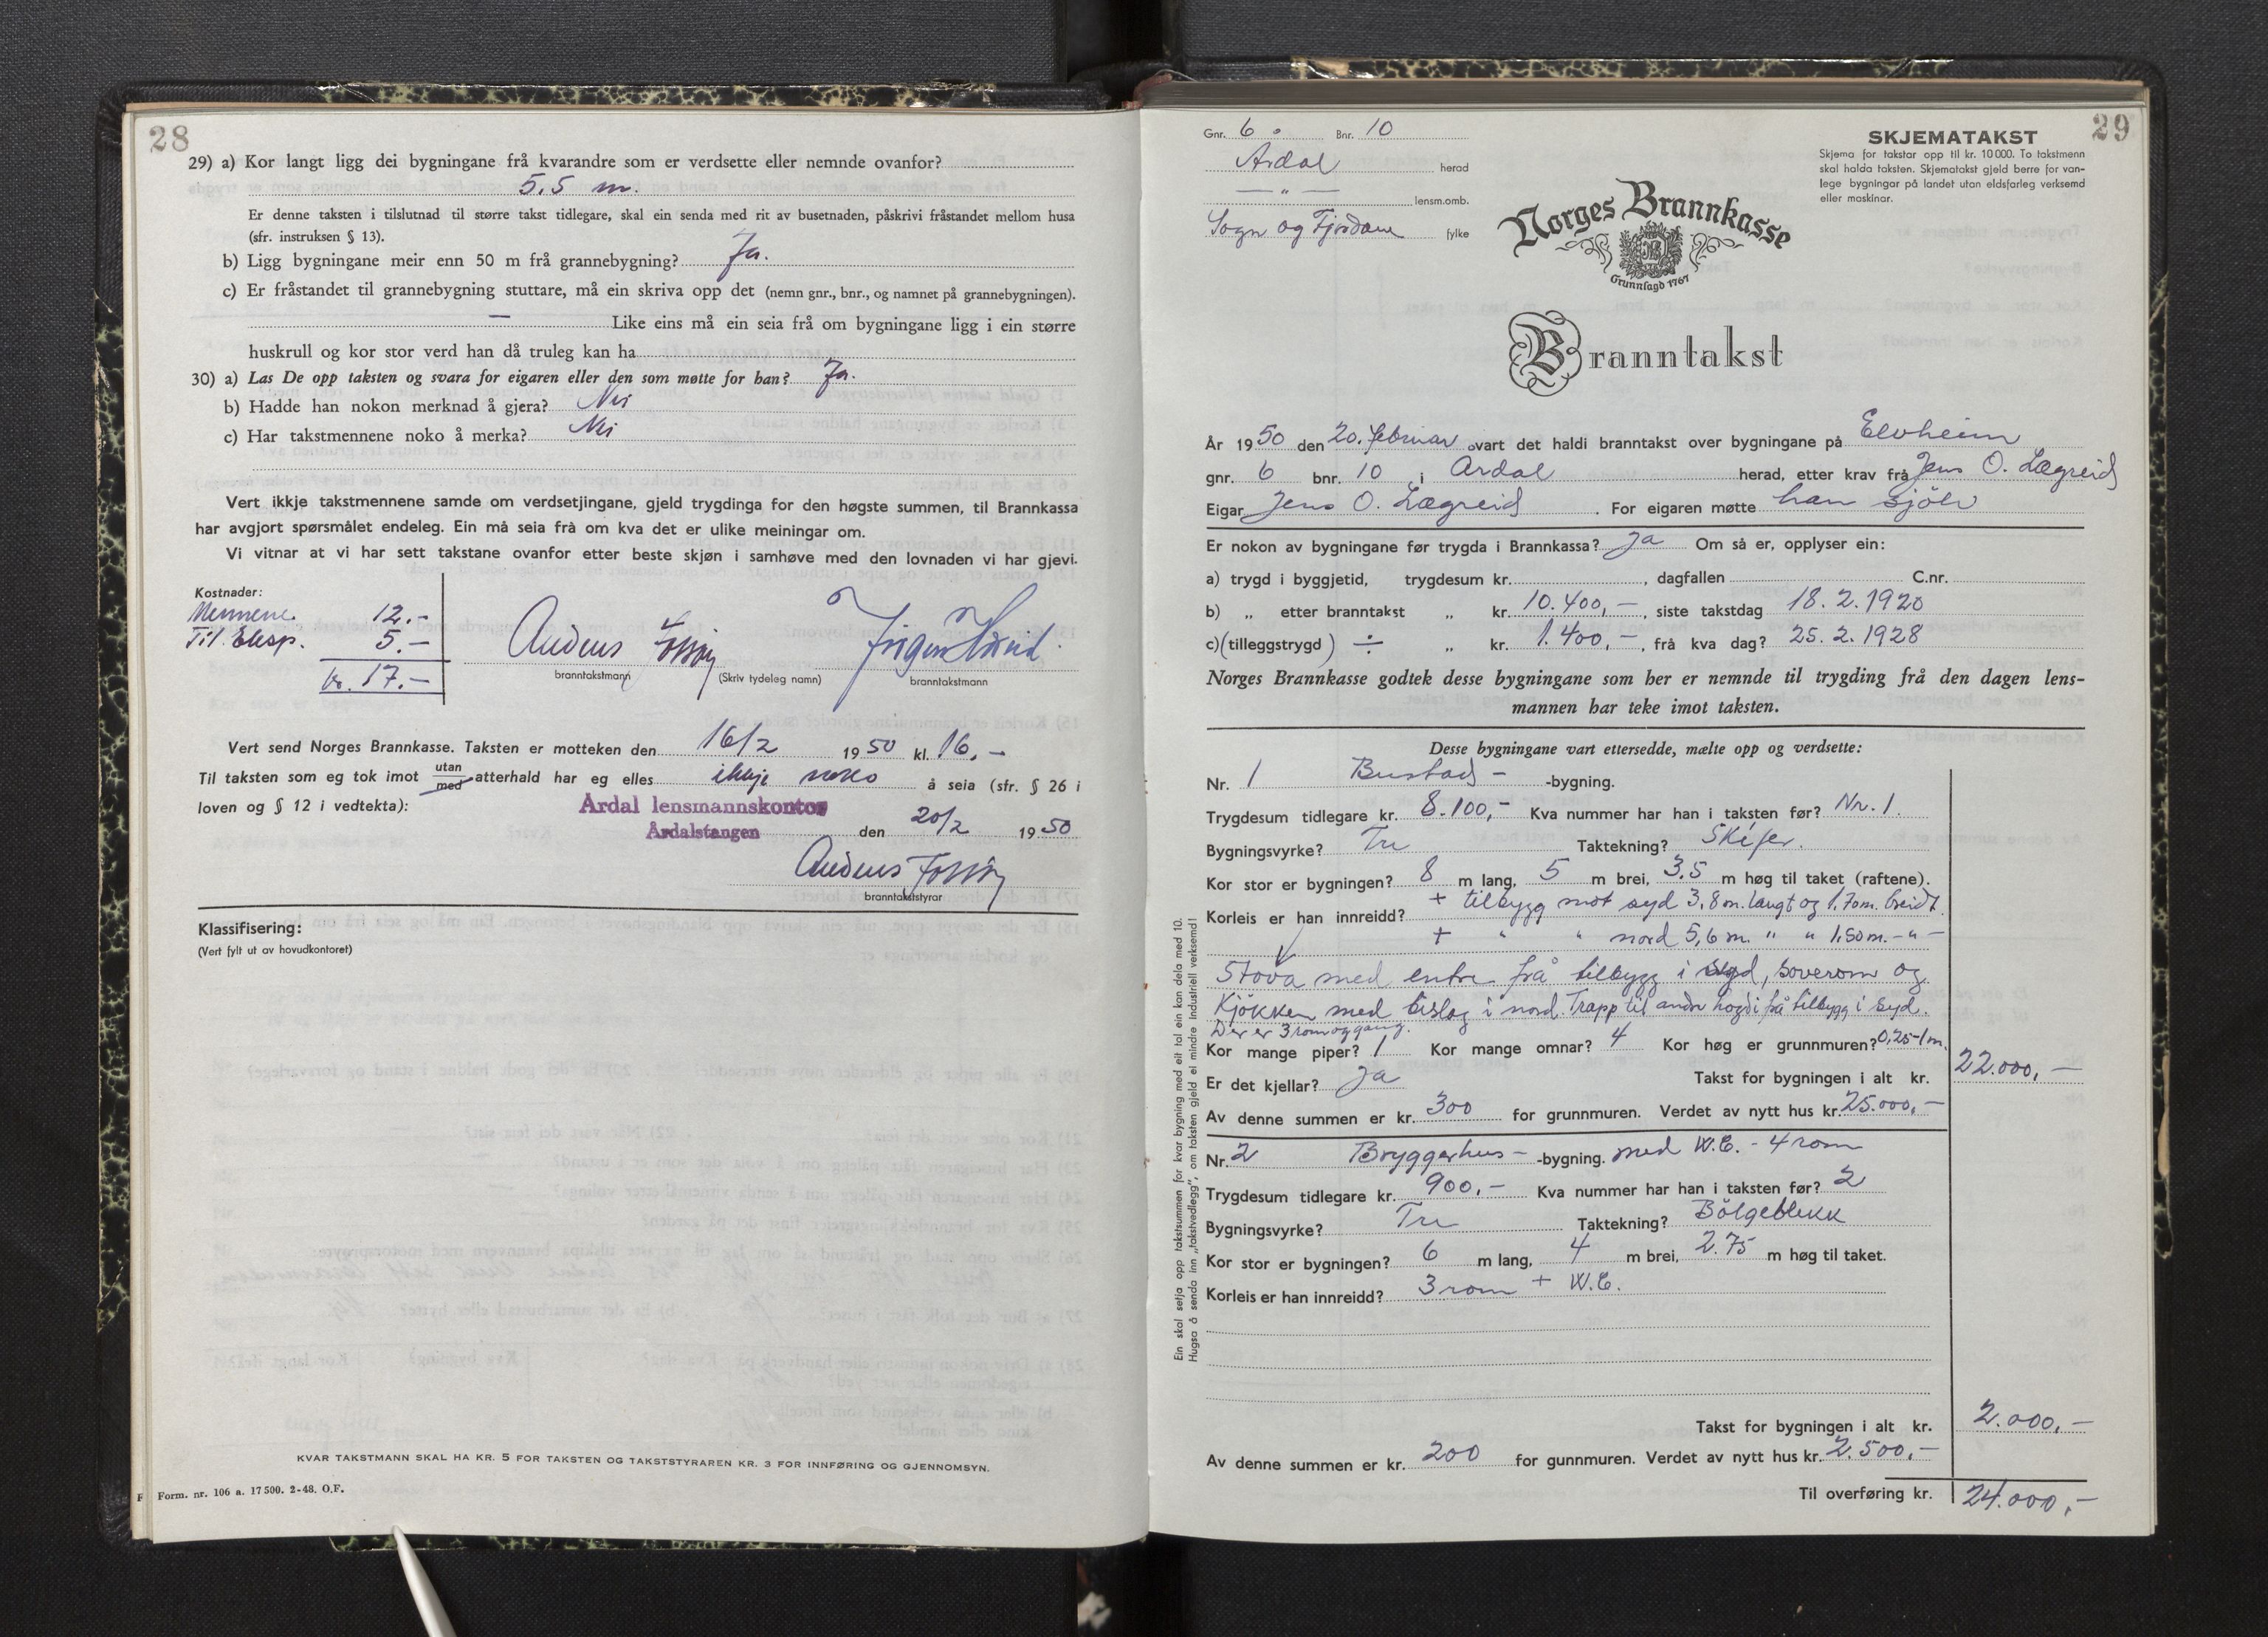 28
29) a) Kor langt ligg dei bygningane frå kvarandre som er verdsette eller nemnde ovanfor?
5.5 m.
Er denne taksten i tilslutnad til større takst tidlegare, skal ein senda med rit av busetnaden, påskrivi fråstandet mellom husa
(sfr. instruksen § 13).
b) Ligg bygningane meir enn 50 m frå grannebygning? Ja.
c) Er fråstandet til grannebygning stuttare, må ein skriva opp det (nemn gnr., bnr., og namnet på grannebygningen).
— Like eins må ein seia frå om bygningane ligg i ein større
huskrull og kor stor verd han då truleg kan ha
30) a) Las De opp taksten og svara for eigaren eller den som møtte for han? Ja.
b) Hadde han nokon merknad å gjera? Nei
c) Har takstmennene noko å merka? Nei
Vert ikkje takstmennene samde om verdsetjingane, gjeld trygdinga for den høgste summen, til Brannkassa
har avgjort spørsmålet endeleg. Ein må seia frå om kva det er ulike meiningar om.
Vi vitnar at vi har sett takstane ovanfor etter beste skjøn i samhøve med den lovnaden vi har gjevi.
Kostnader:
Mennene. 12.-
Til Eksp. 5.-
kr. 17.-
Anders
branntakstmann (Skriv tydeleg namn) branntakstmann
Vert send Norges Brannkasse. Taksten er motteken den 16/2 1950 kl. 16,-
Til taksten som eg tok imot utan/med atterhald har eg elles ikkje noko å seia (sfr. § 26 i
loven og § 12 i vedtekta):
Årdal lensmannskontor
Årdalstangen den 20/2 1950
Anders
branntakststyrar
Klassifisering:
(Vert fylt ut av hovudkontoret)
KVAR TAKSTMANN SKAL HA KR. 5 FOR TAKSTEN OG TAKSTSTYRAREN KR. 3 FOR INNFØRING OG GJENNOMSYN.
Form. nr. 106 a. 17 500. 2-48. O.F.
29
Gnr. 6. Bnr. 10
Årdal herad
— " — lensm.omb.
Sogn og Fjordane fylke
SKJEMATAKST
Skjema for takstar opp til kr. 10 000. To takstmenn
skal halda taksten. Skjematakst gjeld berre for van-
lege bygningar på landet utan eldsfarleg verksemd
eller maskinar.
Norges Brannkasse
Grunnlagd 1767
Branntakst
År 1950 den 20. februar vart det haldi branntakst over bygningane på Elvheim
gnr. 6 bnr. 10 i Årdal herad, etter krav frå Jens O. Lægreid
Eigar Jens O. Lægreid. For eigaren møtte han sjölv
Er nokon av bygningane før trygda i Brannkassa? Ja Om så er, opplyser ein:
a) trygd i byggjetid, trygdesum kr. , dagfallen C.nr.
b) „ etter branntakst „ kr. 10.400,-, siste takstdag 18.2.1920
c) (tilleggstrygd) ÷ „ kr. 1.400,-, frå kva dag? 25.2.1928
Norges Brannkasse godtek desse bygningane som her er nemnde til trygding frå den dagen lens-
mannen har teke imot taksten.
Desse bygningane vart ettersedde, mælte opp og verdsette:
Nr. 1 Bustad- -bygning.
Trygdesum tidlegare kr. 8.100,- Kva nummer har han i taksten før? Nr. 1.
Bygningsvyrke? Tre Taktekning? Skifer.
Kor stor er bygningen? 8 m lang, 5 m brei, 3,5 m høg til taket (raftene).
Korleis er han innreidd? + tilbygg mot syd 3,8 m. langt og 1,70 m. breidt.
+ " " nord 5,6 m. " " 1,50 m. - " -
Stova med entre frå tilbygg i syd, soverom og
Kjökken med bislag i nord. Trapp til andre högdi frå tilbygg i syd.
Der er 3 rom og gang.
Kor mange piper? 1 Kor mange omnar? 4 Kor høg er grunnmuren? 0,25-1 m.
Er det kjellar? Ja Takst for bygningen i alt kr. 22.000,-
Av denne summen er kr. 300 for grunnmuren. Verdet av nytt hus kr. 25.000,-
Nr. 2 Bryggerhus- -bygning. med W.C. - 4 rom
Trygdesum tidlegare kr. 900,- Kva nummer har han i taksten før? 2
Bygningsvyrke? Tre Taktekning? Bölgeblikk
Kor stor er bygningen? 6 m lang, 4 m brei, 2.75 m høg til taket.
Korleis er han innreidd? 3 rom + W.C.
Takst for bygningen i alt kr. 2.000,-
Av denne summen er kr. 200 for gunnmuren. Verdet av nytt hus kr. 2.500,-
Til overføring kr. 24.000,-
Ein skal setja opp takstsummen for kvar bygning med eit tal ein kan dela med 10.
Hugsa å senda inn „takstvedlegg", om taksten gjeld ei mindre industriell verksemd!